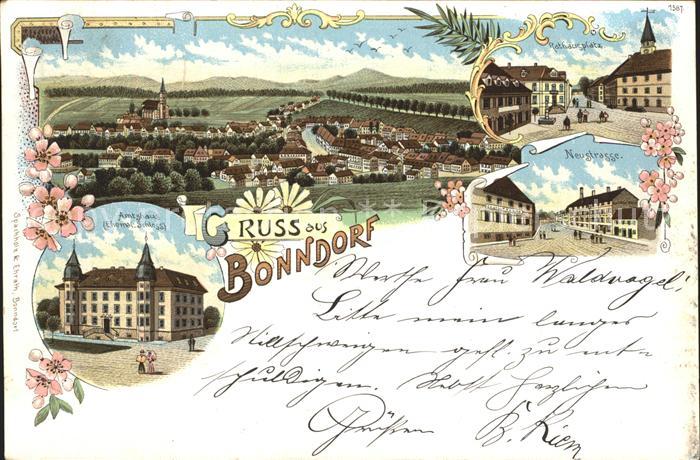 1587.
Rathausplatz
Neustrasse.
Amtshaus
(Ehemal. Schloss)
GRUSS aus
BONNDORF
Spachholz & Ehrath, Bonndorf
Werthe Frau Waldvogel!
Bitte mein langes
Stillschweigen gefl. zu ent-
schuldigen. Nebst herzlichen
Grüßen B. Kien